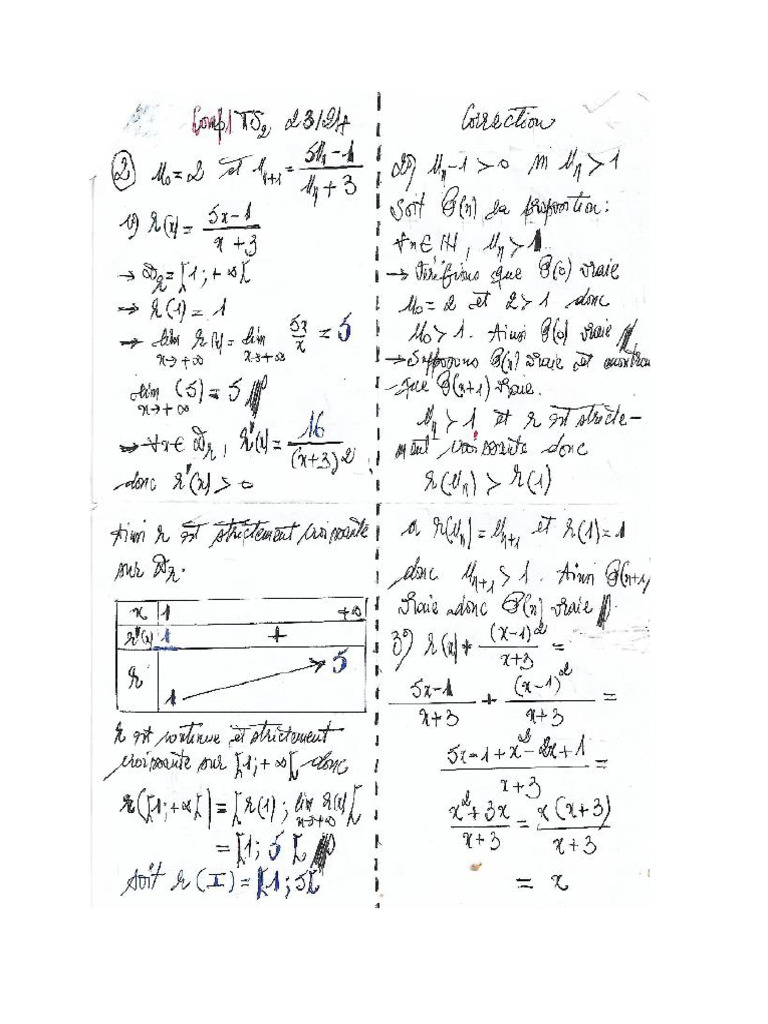 Comp1 TS2 23/24
② U₀ = 2 et Uₙ₊₁ = (5Uₙ - 1)/(Uₙ + 3)
1) r(x) = (5x - 1)/(x + 3)
→ Dr = [1 ; +∞[
→ r(1) = 1
→ lim x→+∞ r(x) = lim x→+∞ 5x/x = 5
lim x→+∞ (5) = 5
→ ∀x ∈ Dr, r'(x) = 16/(x+3)²
donc r'(x) > 0
Ainsi r est strictement croissante
sur Dr.
x | 1 +∞
r'(x) | 1 +
r | 1 → 5
r est continue et strictement
croissante sur [1 ; +∞[ donc
r([1 ; +∞[) = [r(1) ; lim x→+∞ r(x)[
= [1 ; 5[
soit r(I) = [1 ; 5[
Correction
2°) Uₙ - 1 > 0 si Uₙ > 1
Soit P(n) la proposition :
∀n ∈ IN, Uₙ > 1
→ Vérifions que P(0) vraie
U₀ = 2 et 2 > 1 donc
U₀ > 1. Ainsi P(0) vraie
→ Supposons P(n) vraie et montrons
- que P(n+1) vraie.
Uₙ > 1 et r est stricte-
ment croissante donc
r(Uₙ) > r(1)
a r(Uₙ) = Uₙ₊₁ et r(1) = 1
donc Uₙ₊₁ > 1. Ainsi P(n+1)
vraie donc P(n) vraie
3°) r(x) + (x-1)²/(x+3) =
(5x-1)/(x+3) + (x-1)²/(x+3) =
(5x - 1 + x² - 2x + 1)/(x+3) =
(x² + 3x)/(x+3) = x(x+3)/(x+3)
= x